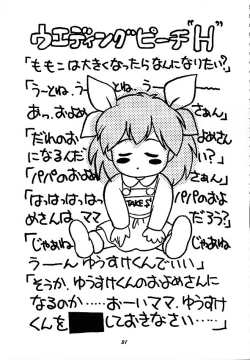 ウエディングピーチ"H"
「ももこは大きくなったらなんになりたい?」
「うーとね、うーとね、うー
あっ、およめさぁん」
「だれのおよめさん
になるんだ?」
「パパのおよめさぁん」
「はっはっはっはっ パパのおよ
めさんは、ママだろう?」
「じゃあね
うーん ゆうすけくんでいい」
「そうか、ゆうすけくんのおよめさんに
なるのか……おーいママ、ゆうすけ
くんを しておきなさい……」
TAKE S
31